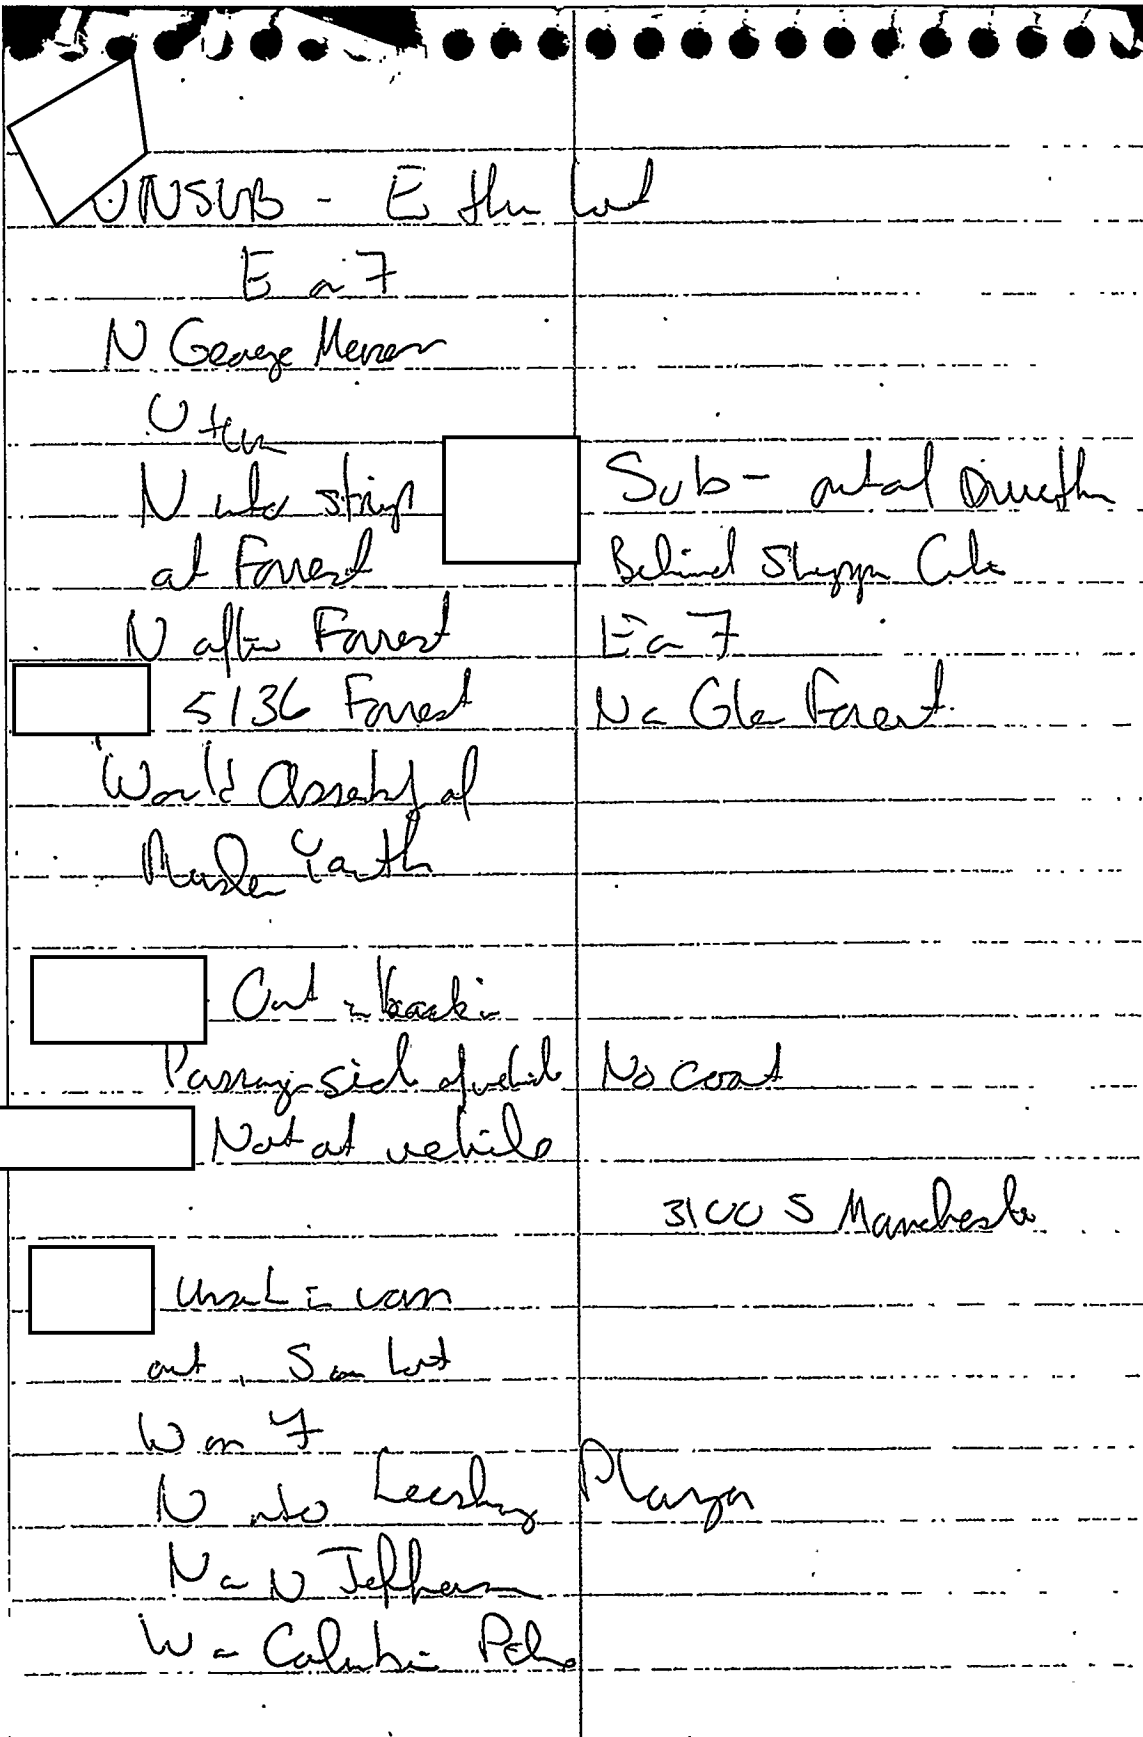 UNSUB - E thru lot
E on 7
N George Mason
U turn
N into strip
at Forrest
N after Forrest
5136 Forrest
"World Assembly of
Muslim Youth
Out in back in
Passenger side of vehicle No coat
Not at vehicle
Unsub in van
out, S on lot
W on 7
N into Leesburg Plaza
N on N Jefferson
W on Columbia Pike
Sub - out of
Behind Shopping
E on 7
N on Glen Forest
3100 S Manchester